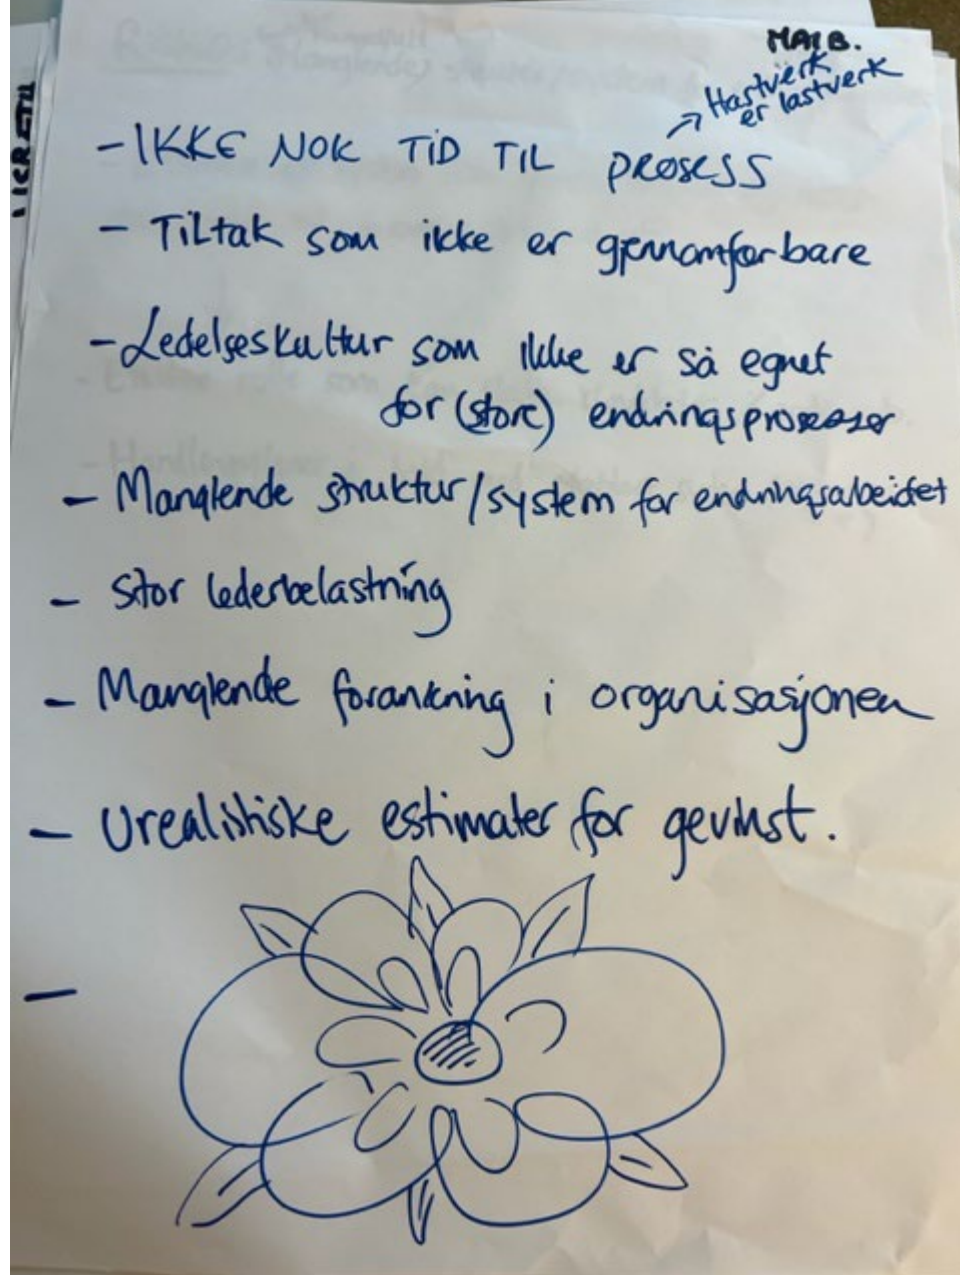 MAI B.
Hastverk
er lastverk
- IKKE NOK TID TIL PROSESS
- Tiltak som ikke er gjennomførbare
- Ledelseskultur som ikke er så egnet
for (store) endringsprosesser
- Manglende struktur/system for endringsarbeidet
- Stor lederbelastning
- Manglende forankning i organisasjonen
- Urealistiske estimater for gevinst.
-